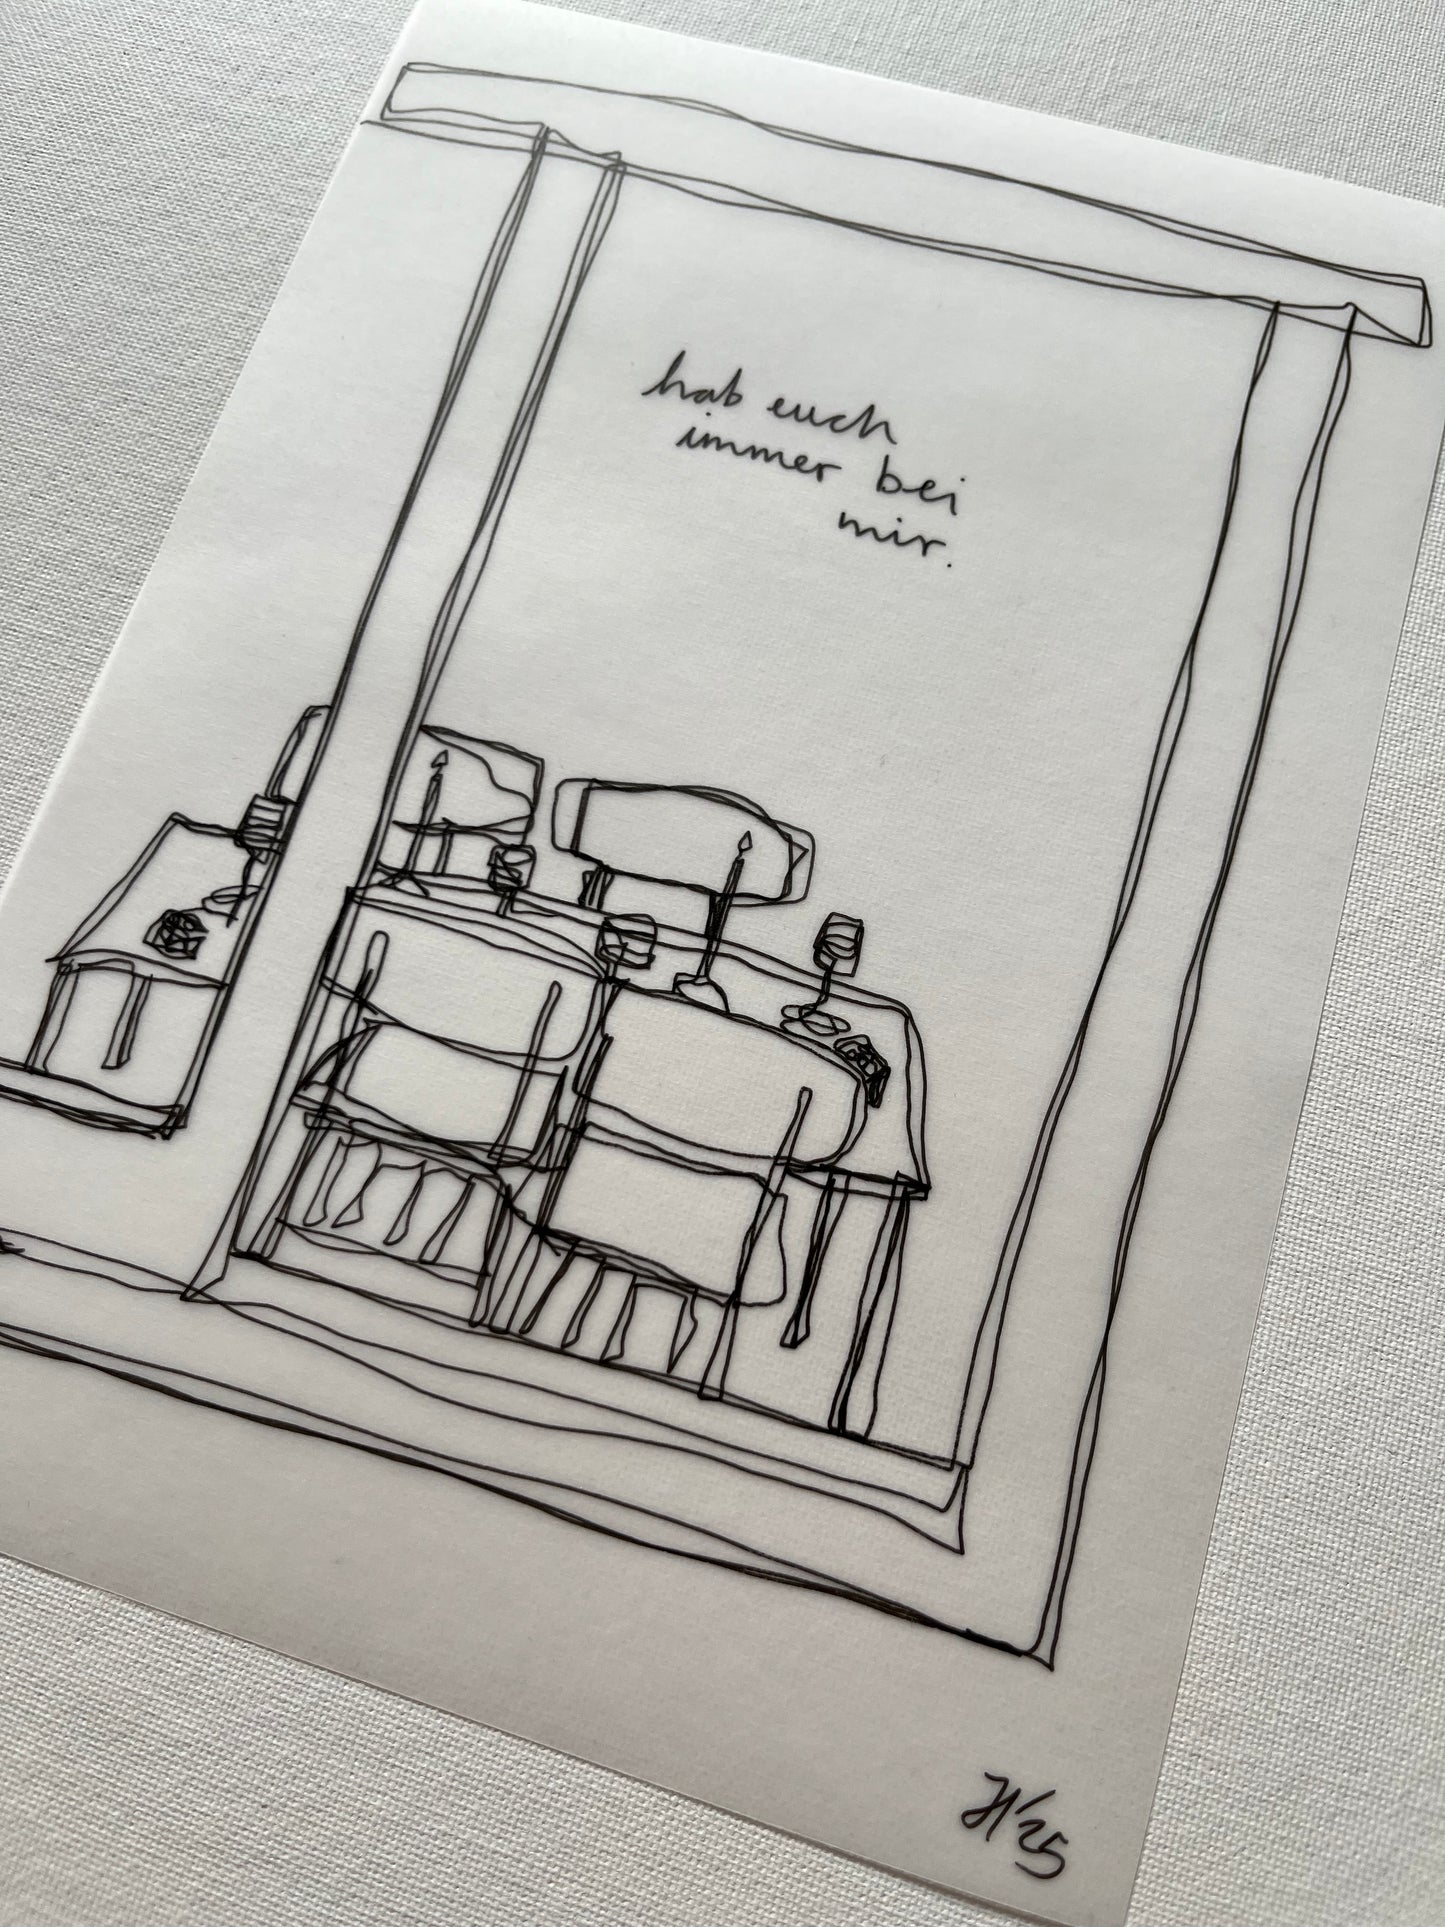 hab euch
immer bei
mir.
H'25